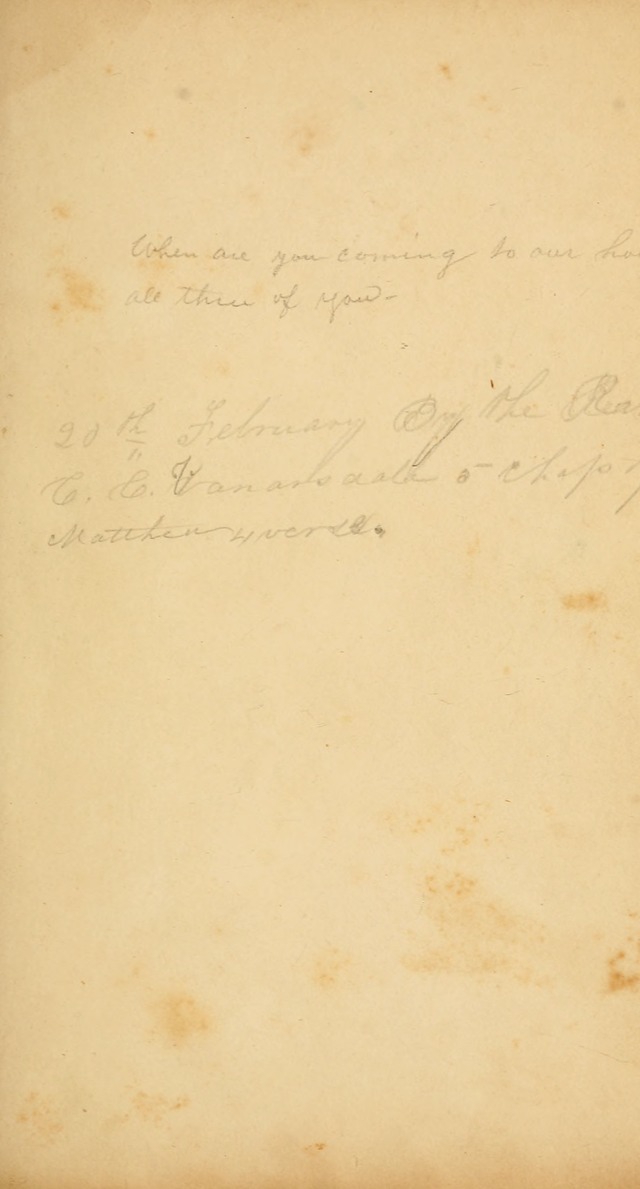 When are you coming to our hou
all three of you -
20th February By the Rev
C. C. Vanarsdale 5 chap
Matthew 4 verse.